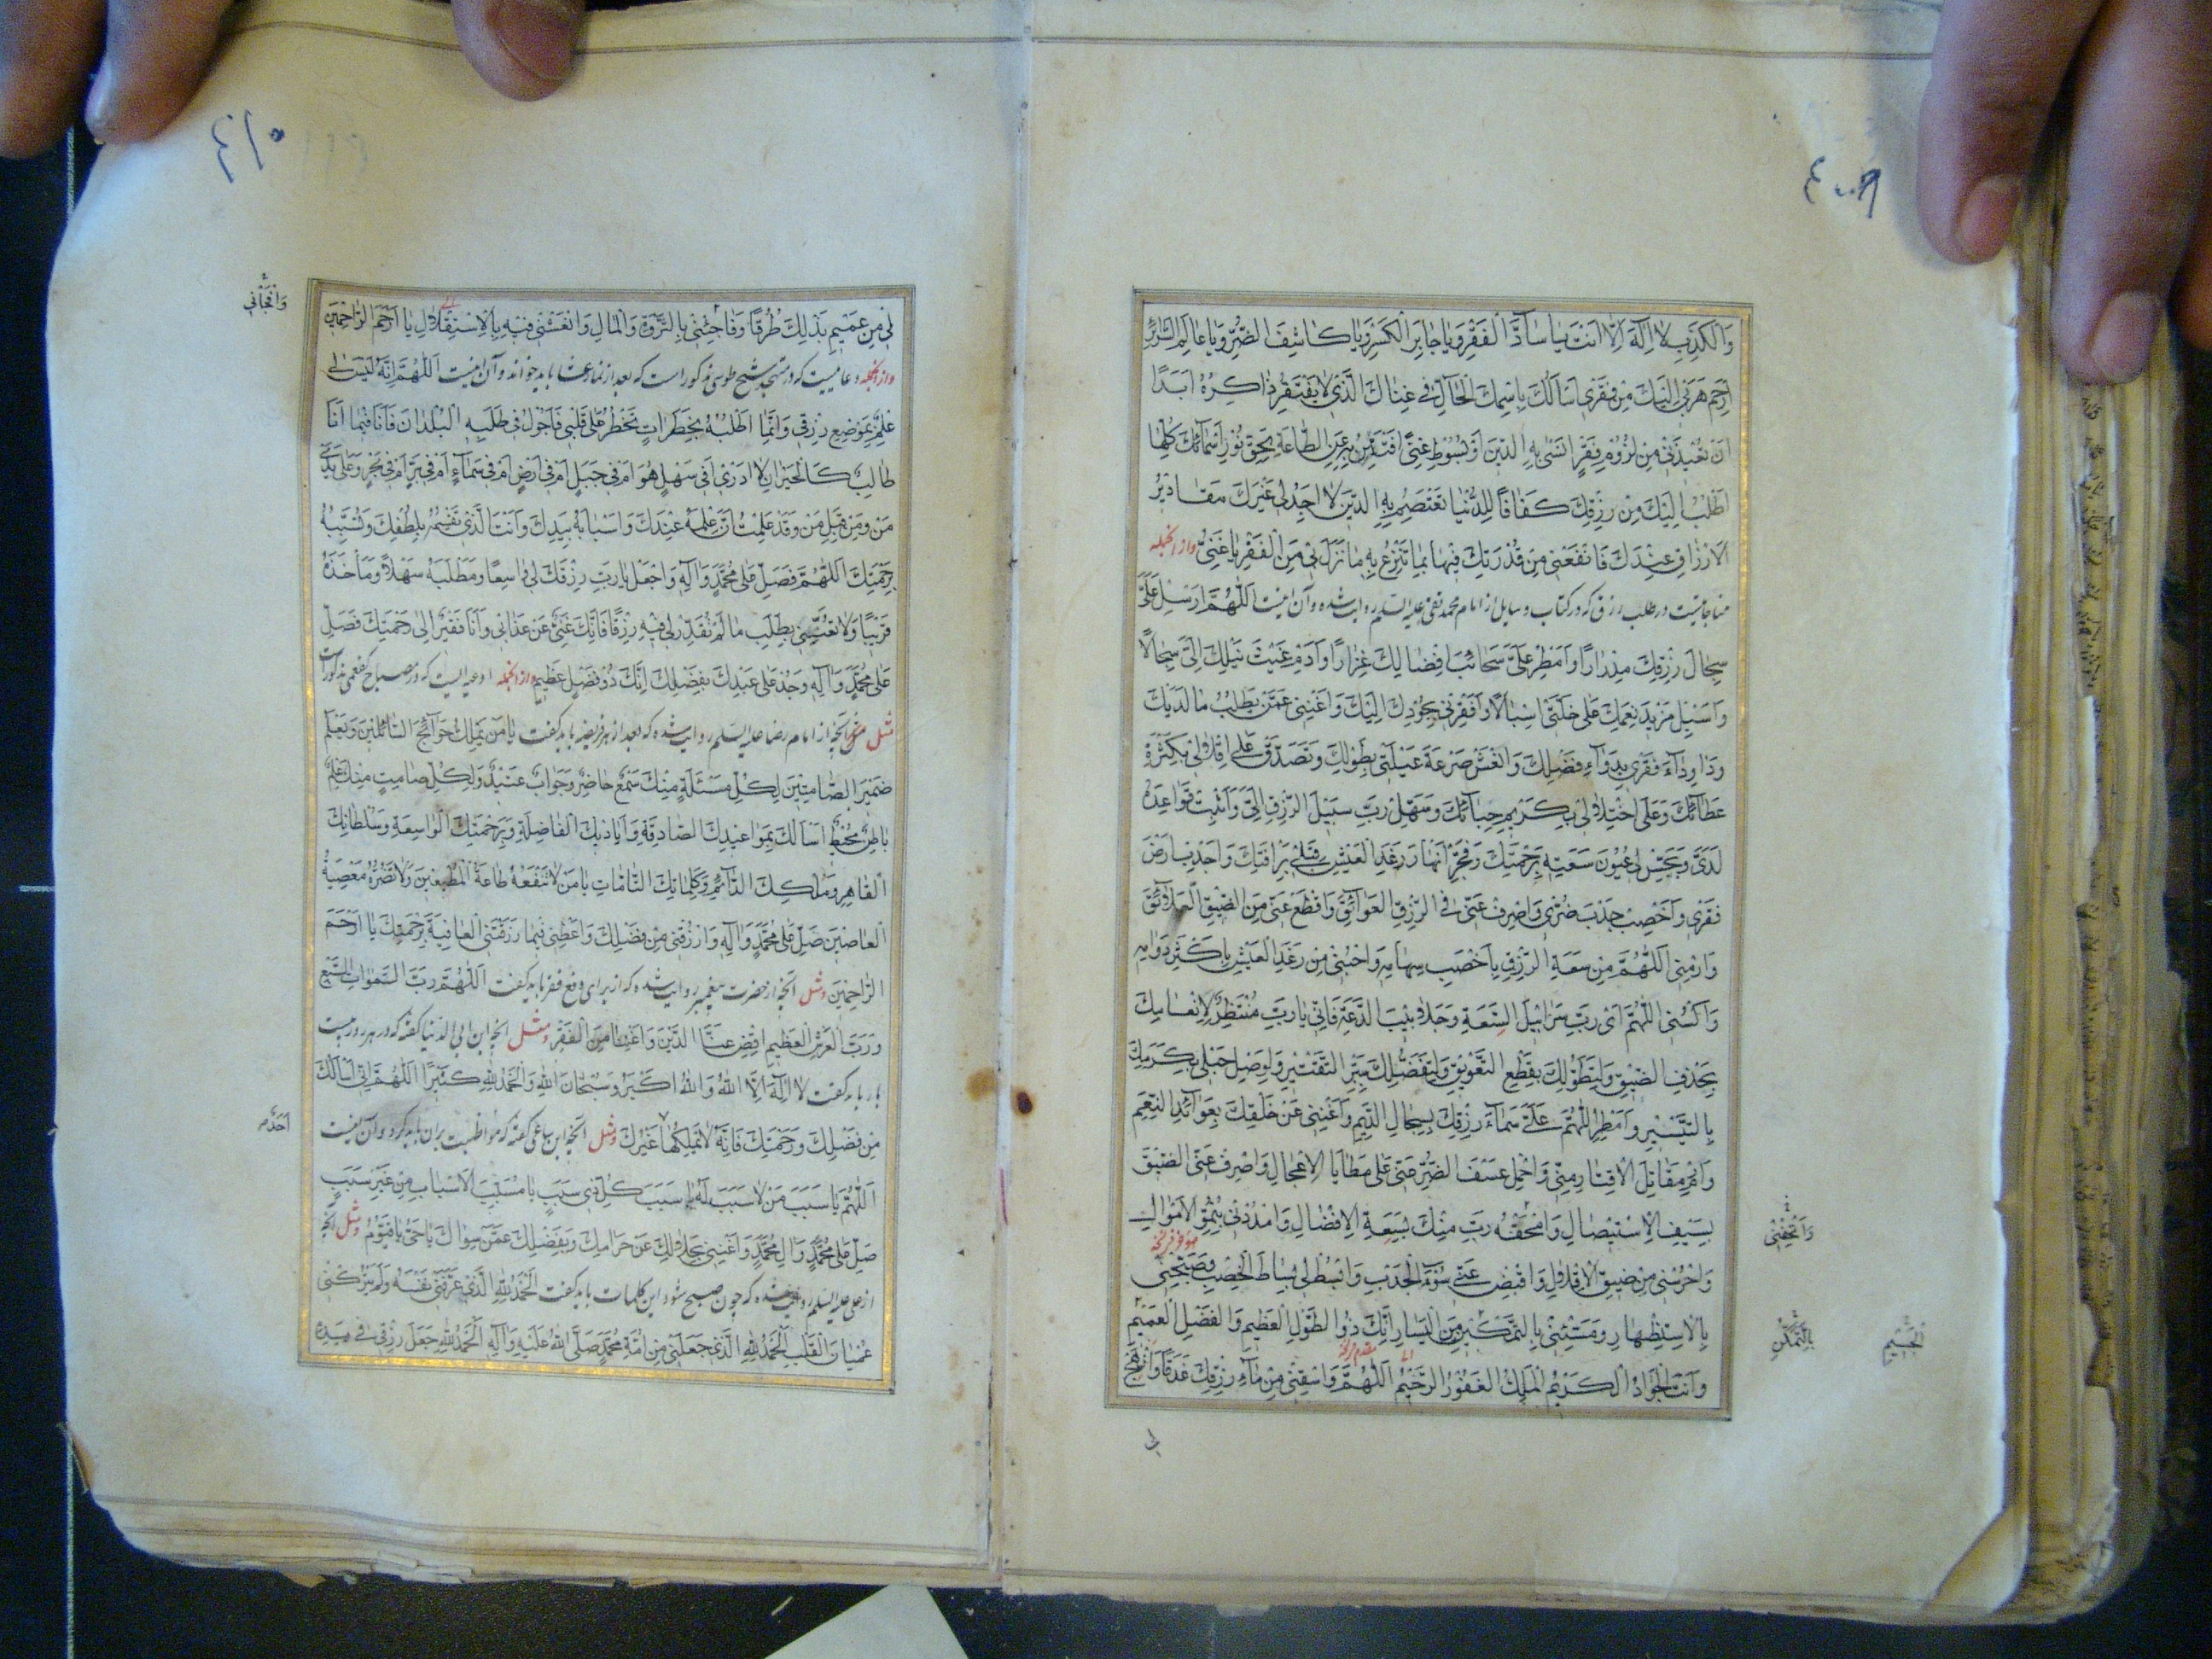 ٤٠٩
وَالْكَذِبِ لا اِلٰهَ اِلّا اَنْتَ يا سآدَّ الْفَقْرِ وَيا جابِرَ الْكَسْرِ وَيا كاشِفَ الضُّرِّ وَيا عالِمَ السَّرآئِرِ
اِرْحَمْ هَرَبي اِلَيْكَ مِنْ فَقْري اَسْاَلُكَ بِاسْمِكَ الْحآلِّ في غِناكَ الَّذي لا يَفْتَقِرُ ذاكِرُهُ اَبَدًا
اَنْ تُعيذَني مِنْ لُزُومِ فَقْرٍ اَنْسى بِهِ الدّينَ اَوْ بُسُوطِ غِنًى اَفْتَتِنُ بِهِ عَنِ الطّاعَةِ بِحَقِّ نُورِ اَسْمآئِكَ كُلِّها
اَطْلُبُ اِلَيْكَ مِنْ رِزْقِكَ كَفافًا لِلدُّنْيا تَعْصِمُ بِهِ الدّينَ لا اَجِدُ لي غَيْرَكَ مَقاديرُ
الْاَرْزاقِ عِنْدَكَ فَانْفَعْني مِنْ قُدْرَتِكَ فيها بِما تَنْزِعُ بِهِ ما نَزَلَ بي مِنَ الْفَقْرِ يا غَنِيُّ وازانجمله
مناجاتیست در طلب رزق که در کتاب وسایل از امام محمد تقی علیه السلم روایت شده و آن اینست اَللّٰهُمَّ اَرْسِلْ عَلَيَّ
سِجالَ رِزْقِكَ مِدْرارًا وَاَمْطِرْ عَلَيَّ سَحائِبَ اِفْضالِكَ غِزارًا وَاَدِمْ غَيْثَ نَيْلِكَ اِلَيَّ سِجالًا
وَاَسْبِلْ مَزيدَ نِعَمِكَ عَلى خَلَّتي اِسْبالًا وَاَفْقِرْني بِجُودِكَ اِلَيْكَ وَاَغْنِني عَمَّنْ يَطْلُبُ ما لَدَيْكَ
وَداوِ دآءَ فَقْري بِدَوآءِ فَضْلِكَ وَانْعَشْ صَرْعَةَ عَيْلَتي بِطَوْلِكَ وَتَصَدَّقْ عَلى اِقْلالي بِكَثْرَةِ
عَطآئِكَ وَعَلَى اخْتِلالي بِكَريمِ حِبآئِكَ وَسَهِّلْ رَبِّ سَبيلَ الرِّزْقِ اِلَيَّ وَاَثْبِتْ قَواعِدَهُ
لَدَيَّ وَبَجِّسْ لي عُيُونَ سَعَتِهِ بِرَحْمَتِكَ وَفَجِّرْ اَنْهارَ رَغَدِ الْعَيْشِ قِبَلي بِرَاْفَتِكَ وَاَجْدِبْ اَرْضَ
فَقْري وَاَخْصِبْ جَدْبَ ضُرّي وَاصْرِفْ عَنّي فِي الرِّزْقِ الْعَوآئِقَ وَاقْطَعْ عَنّي مِنَ الضّيقِ الْعَلآئِقَ
وَارْمِني اَللّٰهُمَّ مِنْ سَعَةِ الرِّزْقِ بِاَخْصَبِ سِهامِهِ وَاحْبُني مِنْ رَغَدِ الْعَيْشِ بِاَكْثَرِ دَوامِهِ
وَاكْسُني اَللّٰهُمَّ اَيْ رَبِّ سَرابيلَ السَّعَةِ وَجَلابيبَ الدَّعَةِ فَاِنّي يا رَبِّ مُنْتَظِرٌ لِاِنْعامِكَ
بِحَذْفِ الضّيقِ وَلِتَطَوُّلِكَ بِقَطْعِ التَّعْويقِ وَلِتَفَضُّلِكَ بِبَتْرِ التَّقْتيرِ وَلِوَصْلِ حَبْلي بِكَرَمِكَ
بِالتَّيْسيرِ وَاَمْطِرِ اللّٰهُمَّ عَلَيَّ سَمآءَ رِزْقِكَ بِسِجالِ الدِّيَمِ وَاَغْنِني عَنْ خَلْقِكَ بِعَوآئِدِ النِّعَمِ
وَارْمِ مَقاتِلَ الْاِقْتارِ مِنّي وَاحْمِلْ عَسْفَ الضُّرِّ عَنّي عَلى مَطايَا الْاِعْجالِ وَاصْرِفْ عَنّي الضّيقَ
بِسَيْفِ الْاِسْتيصالِ وَامْحَقْهُ رَبِّ مِنْكَ بِسَعَةِ الْاِفْضالِ وَامْدُدْني بِنُمُوِّ الْاَمْوالِ
وَاحْرُسْني مِنْ ضيقِ الْاِقْلالِ وَاقْبِضْ عَنّي سُوءَ الْجَدْبِ وَابْسُطْ لي بِساطَ الْخِصْبِ وَصَبِّحْني
بِالْاِسْتِظْهارِ وَمَسِّني بِالتَّمْكينِ مِنَ الْيَسارِ اِنَّكَ ذُو الطَّوْلِ الْعَظيمِ وَالْفَضْلِ الْعَميمِ
وَاَنْتَ الْجَوادُ الْكَريمُ الْمَلِكُ الْغَفُورُ الرَّحيمُ اَللّٰهُمَّ وَاسْقِني مِنْ مآءِ رِزْقِكَ غَدَقًا وَانْهَجْ
وَاَتْحِفْني
بِالتَّمَكُّنِ
الْجَسيمِ
لی
٤١٠
لي مِنْ عَميمِ بَذْلِكَ طُرُقًا وَفاجِئْني بِالثَّرْوَةِ وَالْمالِ وَانْعَشْني فيهِ بِالْاِسْتِقْلالِ يا اَرْحَمَ الرّاحِمينَ
وازانجمله دعائیست که در متهجد شیخ طوسی مذکور است که بعد از نماز عشا باید خواند و آن اینست اَللّٰهُمَّ اِنَّهُ لَيْسَ لي
عِلْمٌ بِمَوْضِعِ رِزْقي وَاِنَّما اَطْلُبُهُ بِخَطَراتٍ تَخْطُرُ عَلى قَلْبي فَاَجُولُ في طَلَبِهِ الْبُلْدانَ فَاَنَا فيما اَنَا
طالِبٌ كَالْحَيْرانِ لا اَدْري اَفي سَهْلٍ هُوَ اَمْ في جَبَلٍ اَمْ في اَرْضٍ اَمْ في سَمآءٍ اَمْ في بَرٍّ اَمْ في بَحْرٍ وَعَلى يَدَيْ
مَنْ وَمِنْ قِبَلِ مَنْ وَقَدْ عَلِمْتُ اَنَّ عِلْمَهُ عِنْدَكَ وَاَسْبابَهُ بِيَدِكَ وَاَنْتَ الَّذي تَقْسِمُهُ بِلُطْفِكَ وَتُسَبِّبُهُ
بِرَحْمَتِكَ اَللّٰهُمَّ فَصَلِّ عَلى مُحَمَّدٍ وَآلِهِ وَاجْعَلْ يا رَبِّ رِزْقَكَ لي واسِعًا وَمَطْلَبَهُ سَهْلًا وَمَاْخَذَهُ
قَريبًا وَلا تُعَنِّني بِطَلَبِ ما لَمْ تُقَدِّرْ لي فيهِ رِزْقًا فَاِنَّكَ غَنِيٌّ عَنْ عَذابي وَاَنَا فَقيرٌ اِلى رَحْمَتِكَ فَصَلِّ
عَلى مُحَمَّدٍ وَآلِهِ وَجُدْ عَلى عَبْدِكَ بِفَضْلِكَ اِنَّكَ ذُو فَضْلٍ عَظيمٍ وازانجمله ادعیه ایست که در مصباح کفعمی مذکورست
مثل آنچه از امام رضا علیه السلم روایت شده که بعد از هر فریضه باید گفت يا مَنْ يَمْلِكُ حَوآئِجَ السّآئِلينَ وَيَعْلَمُ
ضَميرَ الصّامِتينَ لِكُلِّ مَسْئَلَةٍ مِنْكَ سَمْعٌ حاضِرٌ وَجَوابٌ عَتيدٌ وَلِكُلِّ صامِتٍ مِنْكَ عِلْمٌ
باطِنٌ مُحيطٌ اَسْاَلُكَ بِمَواعيدِكَ الصّادِقَةِ وَاَياديكَ الْفاضِلَةِ وَرَحْمَتِكَ الْواسِعَةِ وَسُلْطانِكَ
الْقاهِرِ وَمُلْكِكَ الدّآئِمِ وَكَلِماتِكَ التّامّاتِ يا مَنْ لا تَنْفَعُهُ طاعَةُ الْمُطيعينَ وَلا تَضُرُّهُ مَعْصِيَةُ
الْعاصينَ صَلِّ عَلى مُحَمَّدٍ وَآلِهِ وَارْزُقْني مِنْ فَضْلِكَ وَاَعْطِني فيما رَزَقْتَنِي الْعافِيَةَ بِرَحْمَتِكَ يا اَرْحَمَ
الرّاحِمينَ ومثل آنچه از حضرت پیغمبر روایت شده که از برای دفع فقر باید گفت اَللّٰهُمَّ رَبَّ السَّمٰواتِ السَّبْعِ
وَرَبَّ الْعَرْشِ الْعَظيمِ اقْضِ عَنَّا الدَّيْنَ وَاَغْنِنا مِنَ الْفَقْرِ ومثل آنچه ابن ابی الدنیا گفته که در هر روز بیست
بار باید گفت لا اِلٰهَ اِلَّا اللهُ وَاللهُ اَكْبَرُ وَسُبْحانَ اللهِ وَالْحَمْدُ لِلّٰهِ كَثيرًا اَللّٰهُمَّ اِنّي اَسْاَلُكَ
مِنْ فَضْلِكَ وَرَحْمَتِكَ فَاِنَّهُ لا يَمْلِكُهُما غَيْرُكَ ومثل آنچه ابن سباعی گفته که مواظبت بران باید کرد و آن اینست
اَللّٰهُمَّ يا سَبَبَ مَنْ لا سَبَبَ لَهُ يا سَبَبَ كُلِّ ذي سَبَبٍ يا مُسَبِّبَ الْاَسْبابِ مِنْ غَيْرِ سَبَبٍ
صَلِّ عَلى مُحَمَّدٍ وَآلِ مُحَمَّدٍ وَاَغْنِني بِحَلالِكَ عَنْ حَرامِكَ وَبِفَضْلِكَ عَمَّنْ سِواكَ يا حَيُّ يا قَيُّومُ ومثل آنچه
از علی علیه السلم روایت شده که چون صبح شود این کلمات باید گفت اَلْحَمْدُ لِلّٰهِ الَّذي عَرَّفَني نَفْسَهُ وَلَمْ يَتْرُكْني
عُمْيانَ الْقَلْبِ اَلْحَمْدُ لِلّٰهِ الَّذي جَعَلَني مِنْ اُمَّةِ مُحَمَّدٍ صَلَّى اللهُ عَلَيْهِ وَآلِهِ اَلْحَمْدُ لِلّٰهِ جَعَلَ رِزْقي في يَدِهِ
وَافْجَأْني
اَحَدٌ